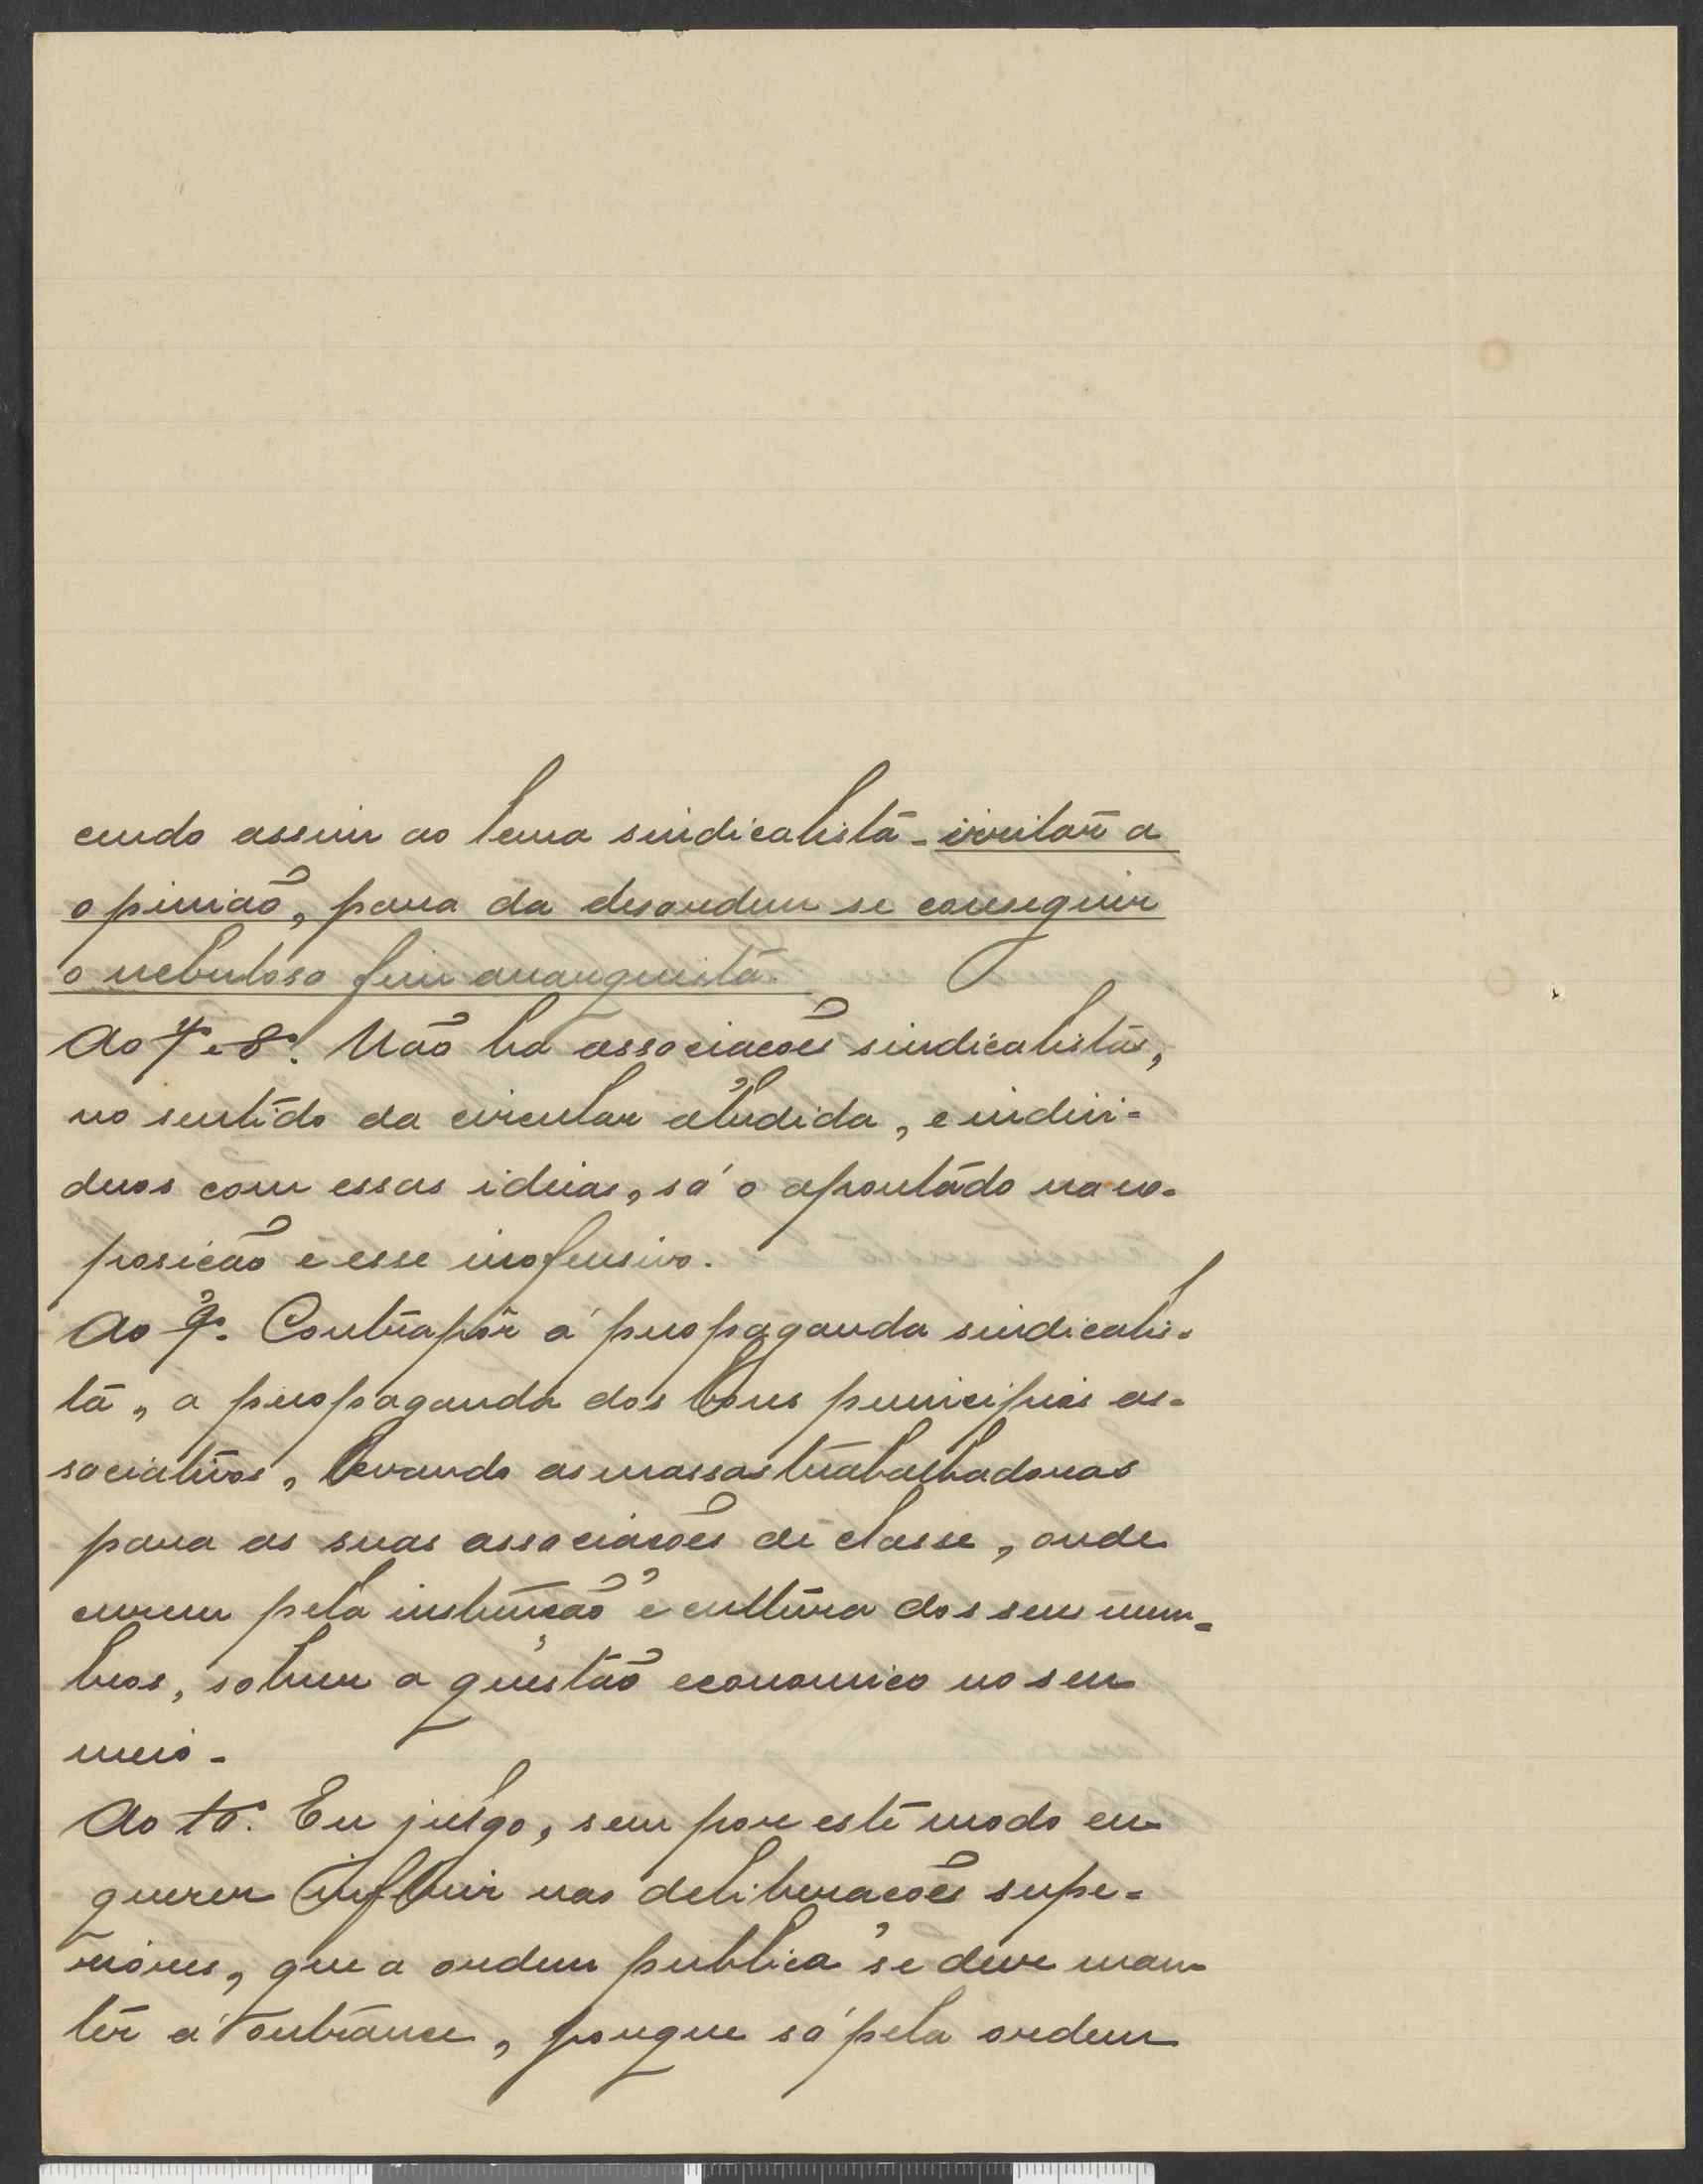 cendo assim ao lema sindicalista - irritar a
opinião, para da desordem se conseguir
o nebuloso fim anarquista.
Ao 7º e 8º. Não ha associações sindicalistas,
no sentido da circular aludida, e indivi-
duos com essas ideias, só o apontado na ro-
posição e esse inofensivo.
Ao 9º. Contrapôr á propaganda sindicalis-
ta, a propaganda dos bons principios as-
sociativos, levando as massas trabalhadoras
para as suas associações de classe, onde
curem pela instrução e cultura dos seus mem-
bros, sobre a questão economica no seu
meio.
Ao 10º. Eu julgo, sem por este modo eu
querer influir nas deliberações supe-
riores, que a ordem publica se deve man
ter á outrance, porque só pela ordem